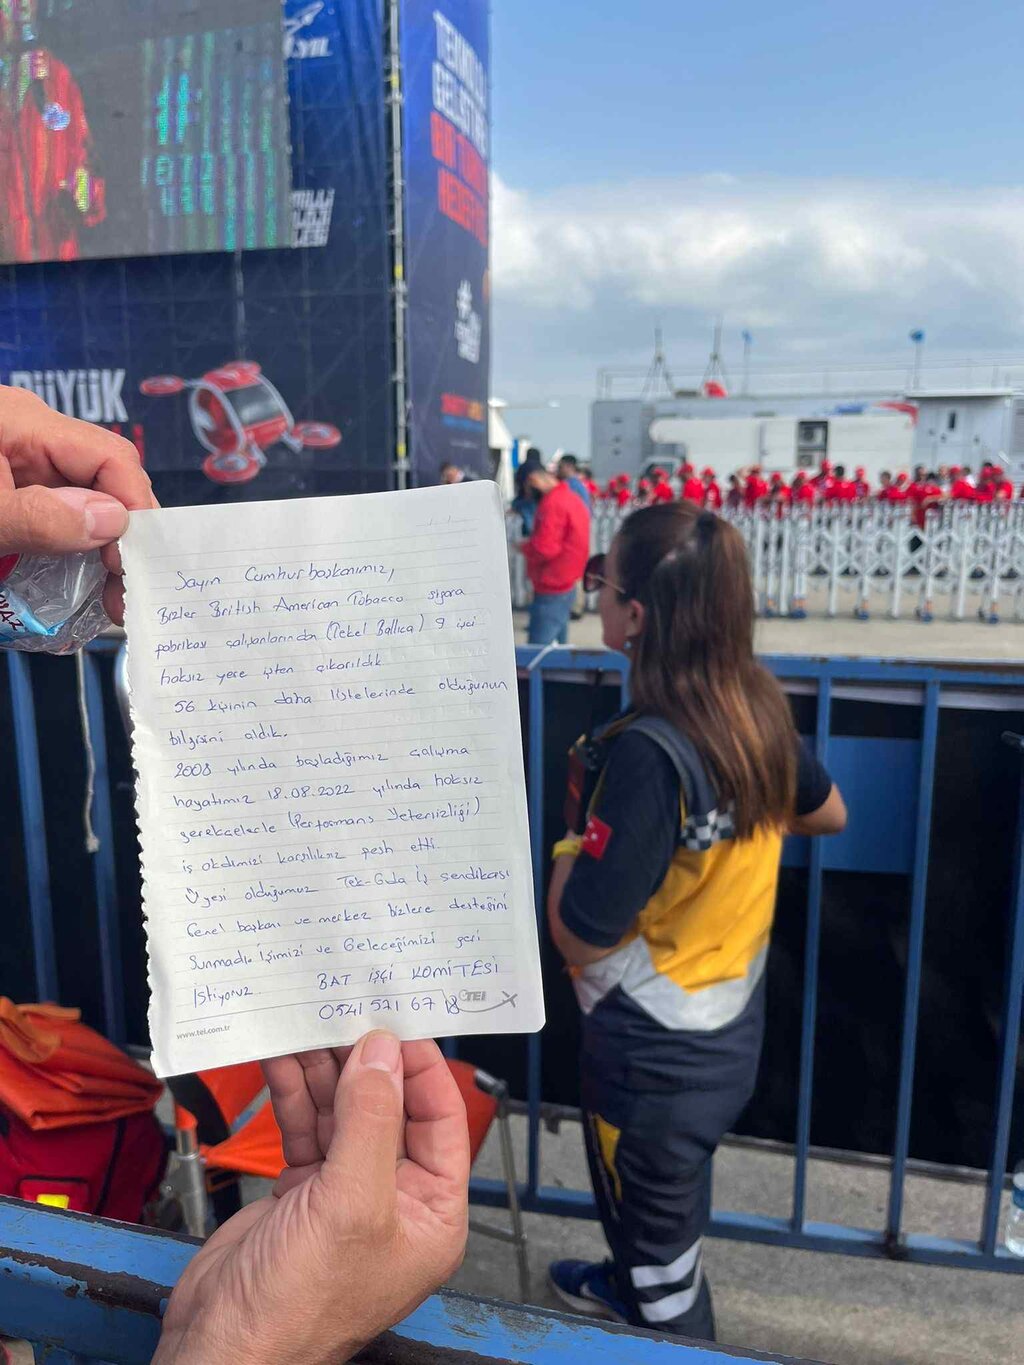 TEKNOLOJİ
GELİŞTİR
MİLLİ
BÜYÜK
Sayın Cumhurbaşkanımız,
Bizler British American Tobacco sigara
fabrikası çalışanlarından (Tekel Ballıca) 9 işçi
haksız yere işten çıkarıldık
56 kişinin daha listelerinde olduğunun
bilgisini aldık.
2008 yılında başladığımız çalışma
hayatımız 18.08.2022 yılında haksız
gerekçelerle (Performans Yetersizliği)
iş akdimizi karşılıksız fesh etti.
Üyesi olduğumuz Tek-Gıda İş sendikası
Genel başkanı ve merkez bizlere desteğini
Sunmadı. İşimizi ve Geleceğimizi geri
istiyoruz. BAT İŞÇİ KOMİTESİ
0541 571 67 18
TEI
www.tei.com.tr